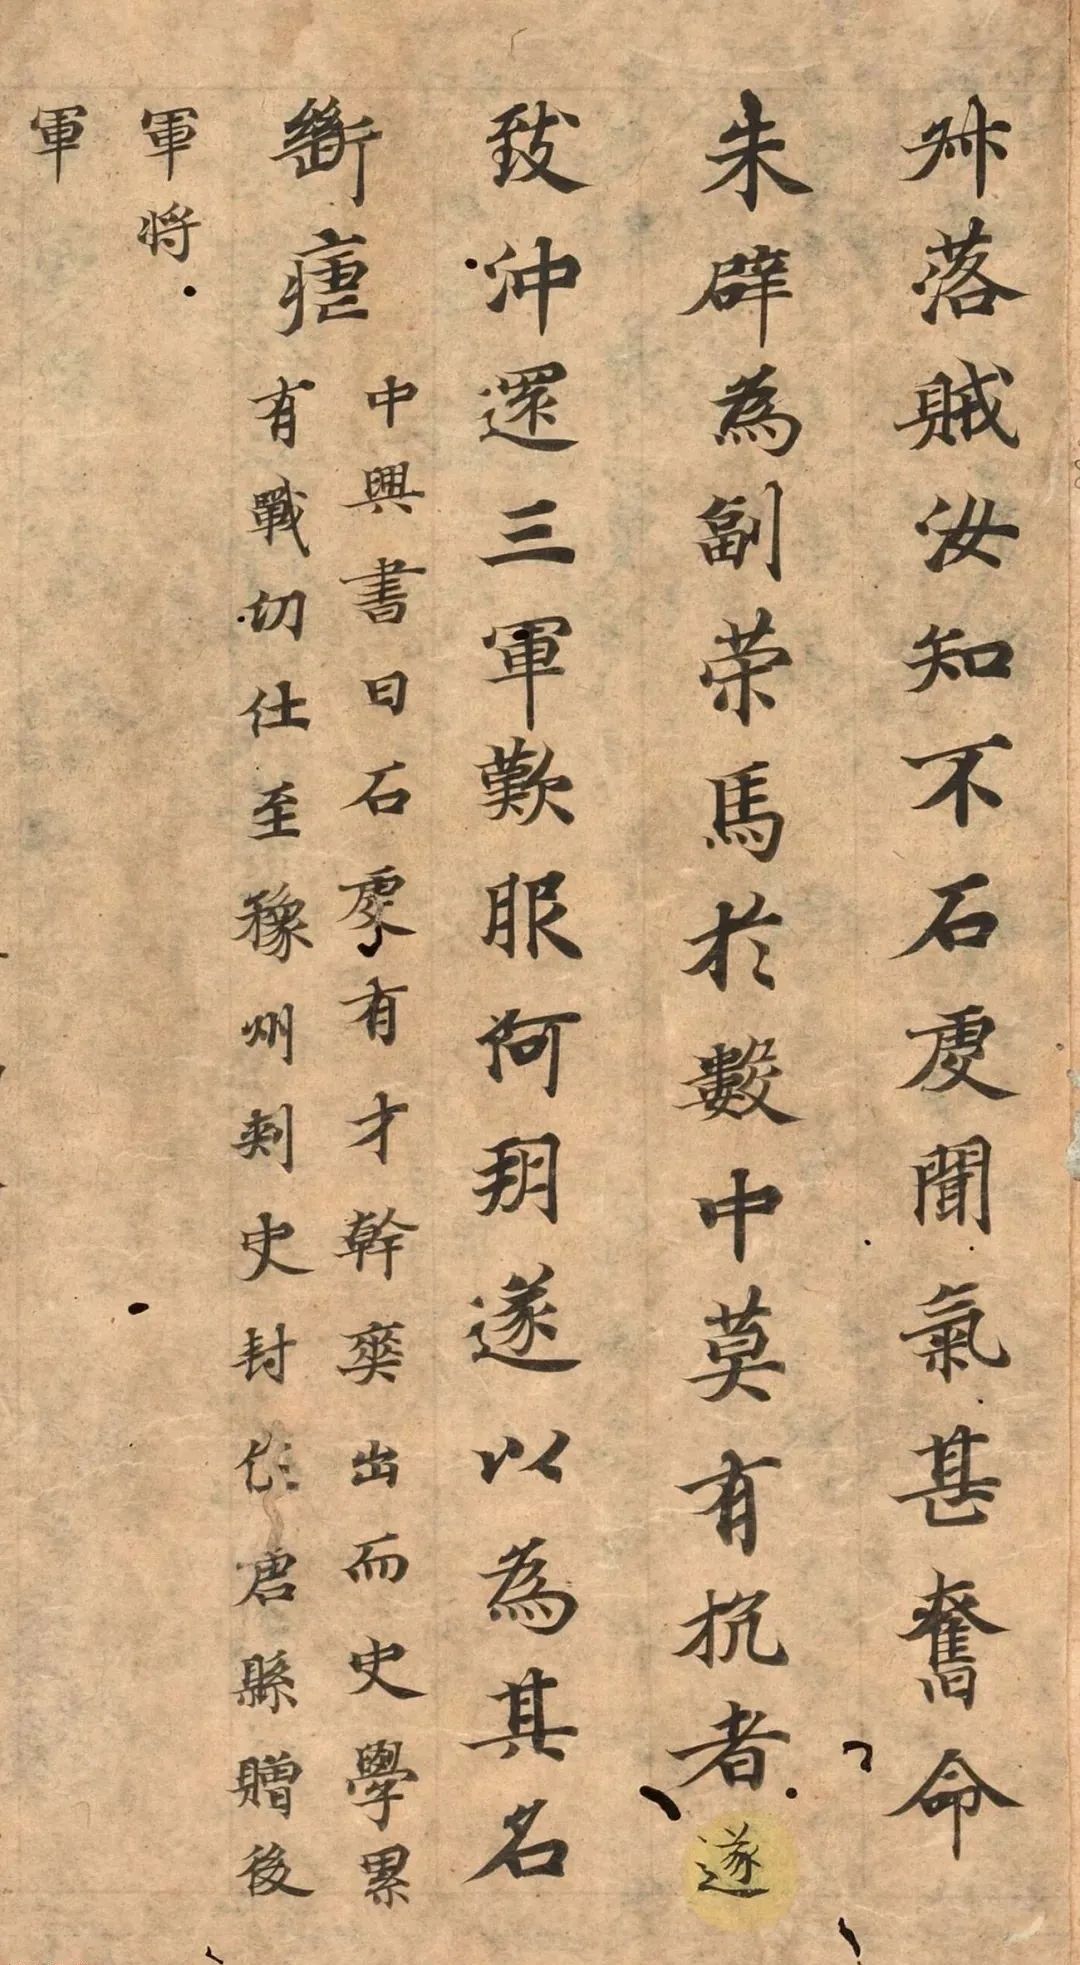 叔落賊汝知不石虔聞氣甚奮命
朱辟為副策馬於數中莫有抗者遂
致沖還三軍歎服河朔遂以為其名
斷瘧
中興書曰石虔有才幹奕出而史學累
有戰功仕至豫州刺史封作唐縣贈後
軍將
軍